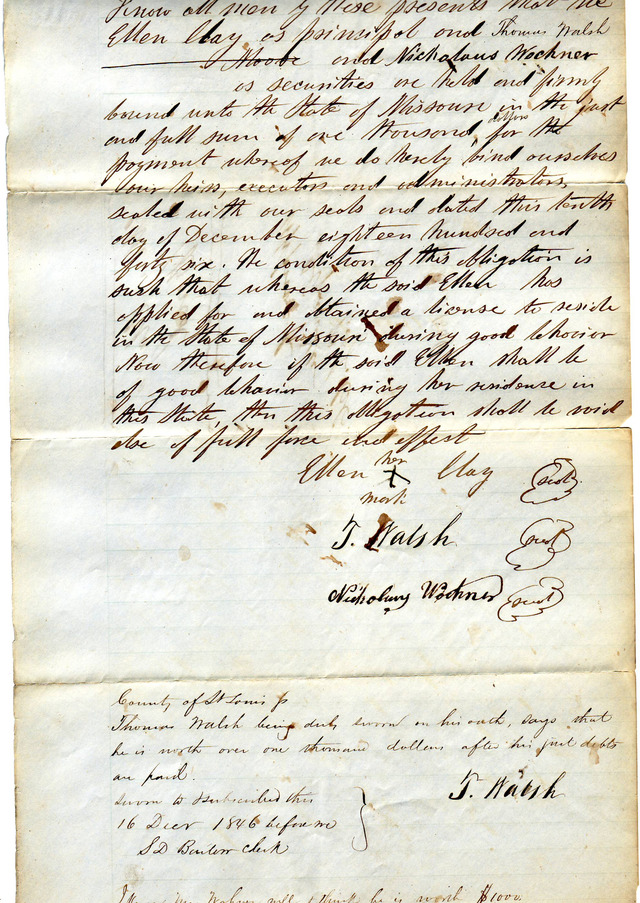 Know all men by these presents that we
Ellen Clay as principal and Thomas Walsh
and Nicholaus Wochner
as securities are held and firmly
bound unto the State of Missouri in the just
and full sum of one thousand dollars for the
payment whereof we do hereby bind ourselves
our heirs, executors and administrators,
sealed with our seals and dated this tenth
day of December eighteen hundred and
forty six. The condition of this obligation is
such that whereas the said Ellen has
applied for and obtained a license to reside
in the State of Missouri during good behavior
Now therefore if the said Ellen shall be
of good behavior during her residence in
this State, then this obligation shall be void
else of full force and effect
Ellen her X mark Clay seal
T. Walsh seal
Wochner seal
County of St Louis ss
Thomas Walsh being duly sworn on his oath, says that
he is worth over one thousand dollars after his just debts
are paid.
T. Walsh
sworn to & subscribed this
16 Decr 1846 before me
S D Barlow clerk
he is worth $1000